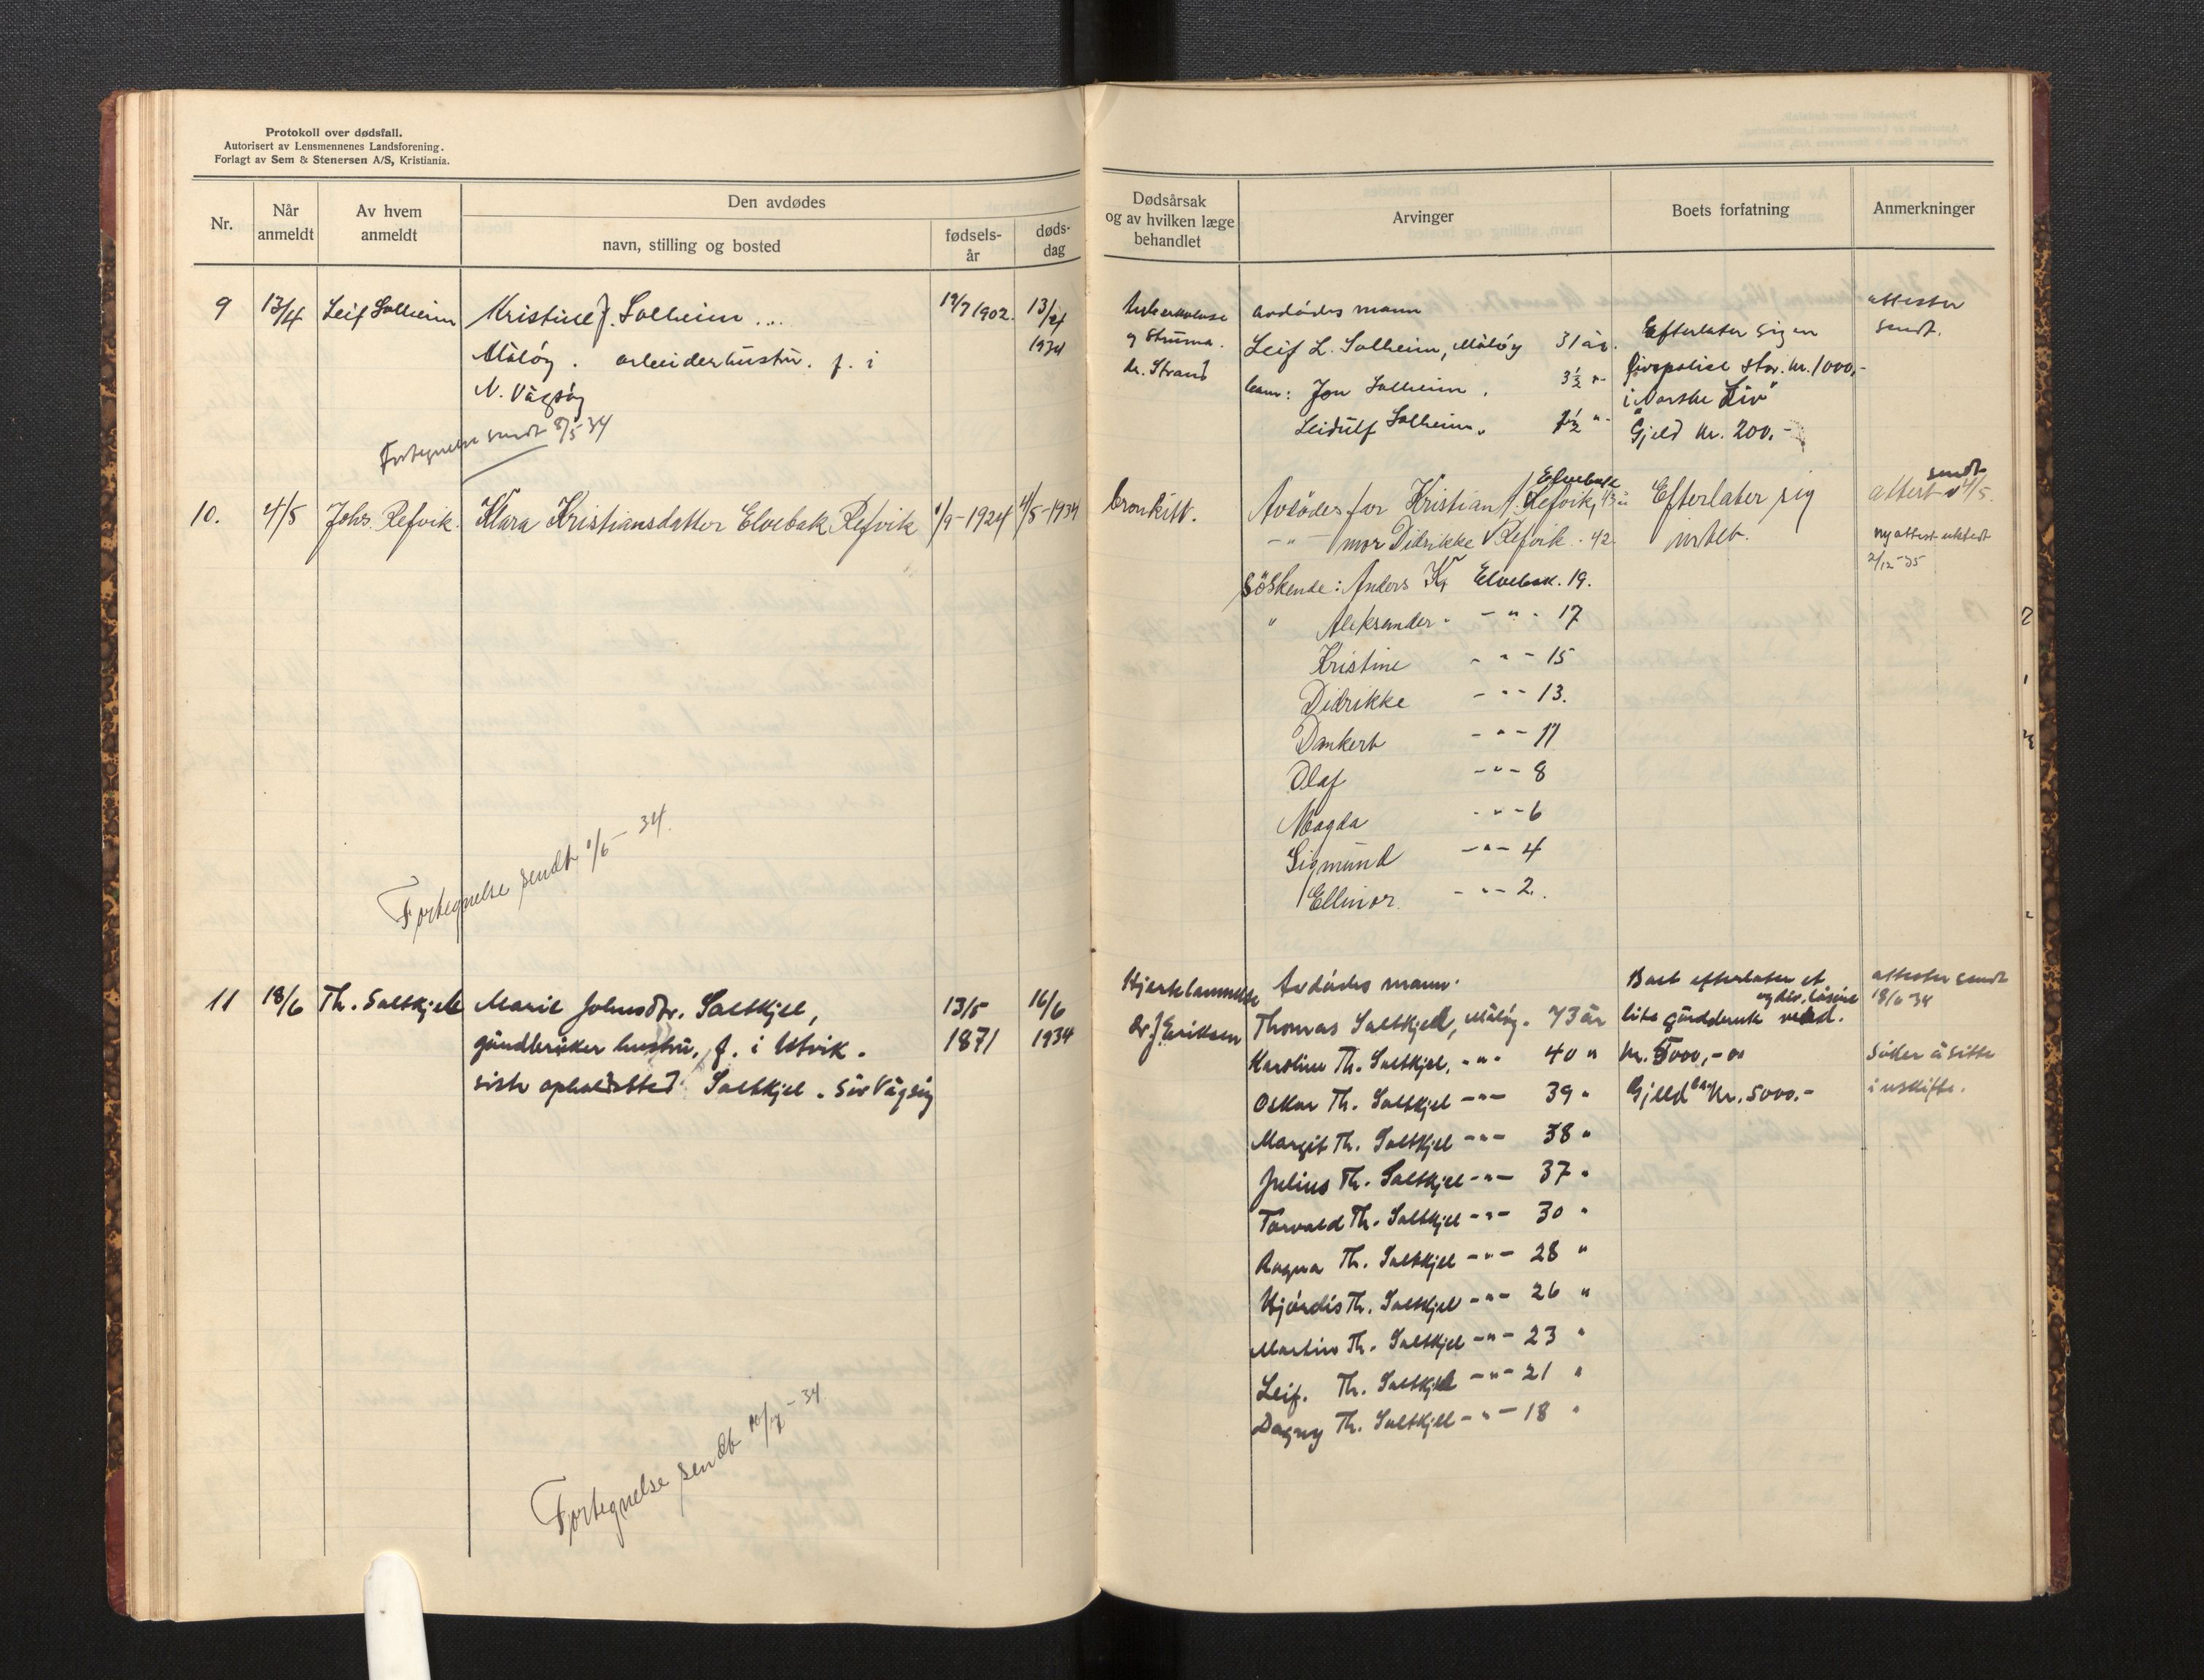 Protokoll over dødsfall.
Autorisert av Lensmennenes Landsforening.
Forlagt av Sem & Stenersen A/S, Kristiania.
Nr.
Når anmeldt
Av hvem anmeldt
Den avdødes
navn, stilling og bosted
fødsels-år
døds-dag
9 13/4 Leif Solheim Kristine J. Solheim 1902. 13/4
Måløy. arbeiderhustru. f. i 1934
N. Vågsøy
Fortegnelse sendt 8/5 34
10. 4/5 Johs. Refvik. Klara Kristiansdatter Elvebak Refvik 1/9-1924 4/5-1934
Fortegnelse sendt 1/6-34.
11 18/6 Th. Saltkjel Marie Johnsdtr. Saltkjel, 13/5 16/6
gårdbruker hustru, f. i Utvik. 1871 1934
siste opholdssted Saltkjel. Sør Vågsøy
Fortegnelse sendt 10/7-34
Dødsårsak
og av hvilken læge
behandlet
Arvinger
Boets forfatning
Anmerkninger
tuberkulose avdødes mann attester
og struma. Leif L. Solheim, Måløy 31 år. Efterlater sig en sendt.
dr. Strand barn: Jon Solheim. 3½ " livspolise stor. kr. 1000,-
i "Norske Liv"
Leidulf Solheim. ½ " Gjeld kr. 200.-
bronkitt. Avdødes far Kristian Elvebak Refvik, 43 år Efterlater sig attest sendt 4/5.
-"- mor Didrikke Refvik. 42 intet. ny attest utstedt
2/12-35
Søskende: Anders K. Elvebak. 19.
" Aleksander. -"- 17
Kristine -"- 15
Didrikke -"- 13.
Dankert -"- 11
Olaf -"- 8
Magda -"- 6
Sigmund -"- 4
Ellinor. -"- 2.
Hjertelammelse Avdødes mann. Boet efterlater et attester sendt
og div. løsøre 18/6 34
Dr. J Eriksen Thomas Saltkjel, Måløy. 73 år lite gårdbruk verd.
Karoline Th. Saltkjel, -"- 40 " kr. 5000,-00 Søker å sitte
Oskar Th. Saltkjel -"- 39 " Gjeld ca kr. 5000.- i uskifte.
Margit Th. Saltkjel -"- 38 "
Julius Th. Saltkjel -"- 37 "
Torvald Th. Saltkjel -"- 30 "
Ragna Th. Saltkjel -"- 28 "
Hjørdis Th. Saltkjel -"- 26 "
Martin Th. Saltkjel -"- 23 "
Leif. Th. Saltkjel -"- 21 "
Dagny Th. Saltkjel -"- 18 "